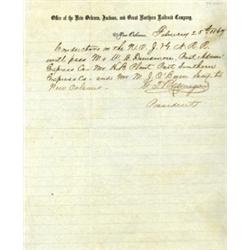 Office of the New Orleans, Jackson, and Great Northern Railroad Company,
New Orleans, February 25th 1869
Conductors on the N.O. J. & G. N. R. R.
will pass Mr W. B. Dinsmore, Pres't Adams
Express Co. Mr. H. B. Plant Pres't Southern
Express Co. and Mr. M. J. O'Brien Supt to
New Orleans
President